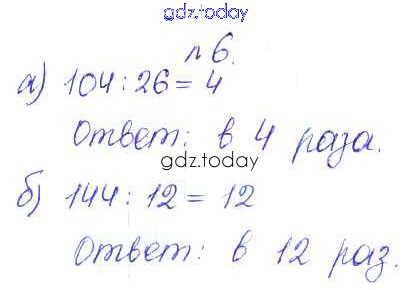 gdz.today
№ 6.
а) 104 : 26 = 4
Ответ: в 4 раза.
gdz.today
б) 144 : 12 = 12
Ответ: в 12 раз.